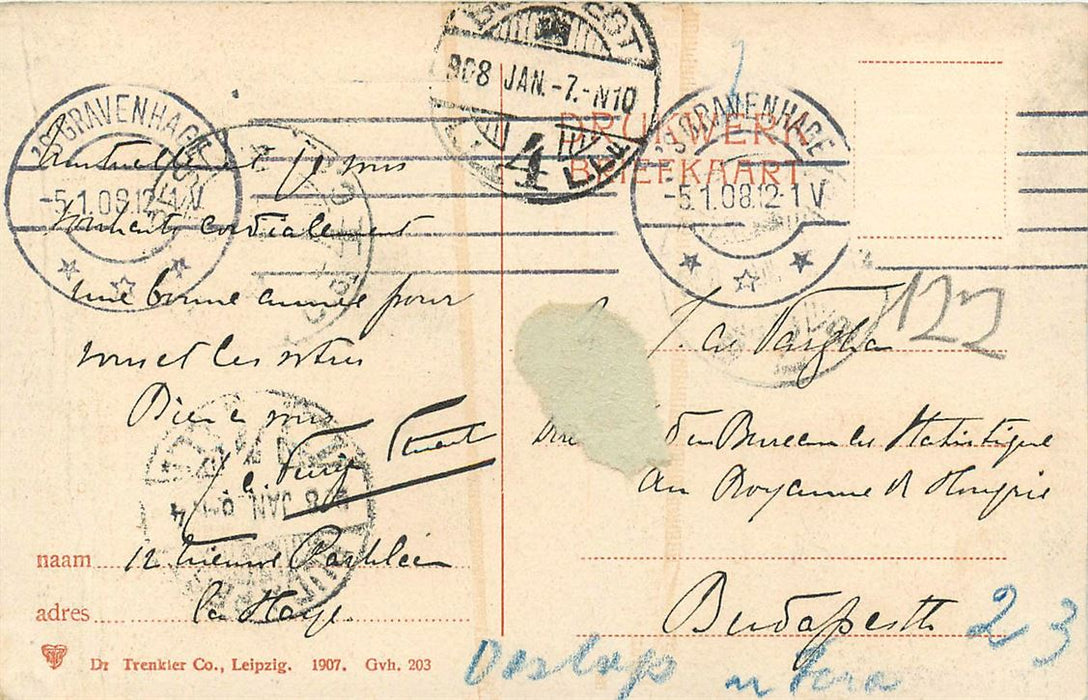 'S GRAVENHAGE
-5.1.08.12-1 V
908 JAN.-7.-N10
4
'S GRAVENHAGE
-5.1.08.12-1 V
DRUKWERK
BRIEFKAART
et je vous
souhaite cordialement
une bonne année pour
vous et les vôtres
Bien à vous
12 Nieuwe Parklaan
La Haye
naam
adres
Dr Trenkler Co., Leipzig. 1907. Gvh. 203
122
J. de Vargha
du Bureau de Statistique
au Royaume de Hongrie
Budapesth
23
Oszlop utca